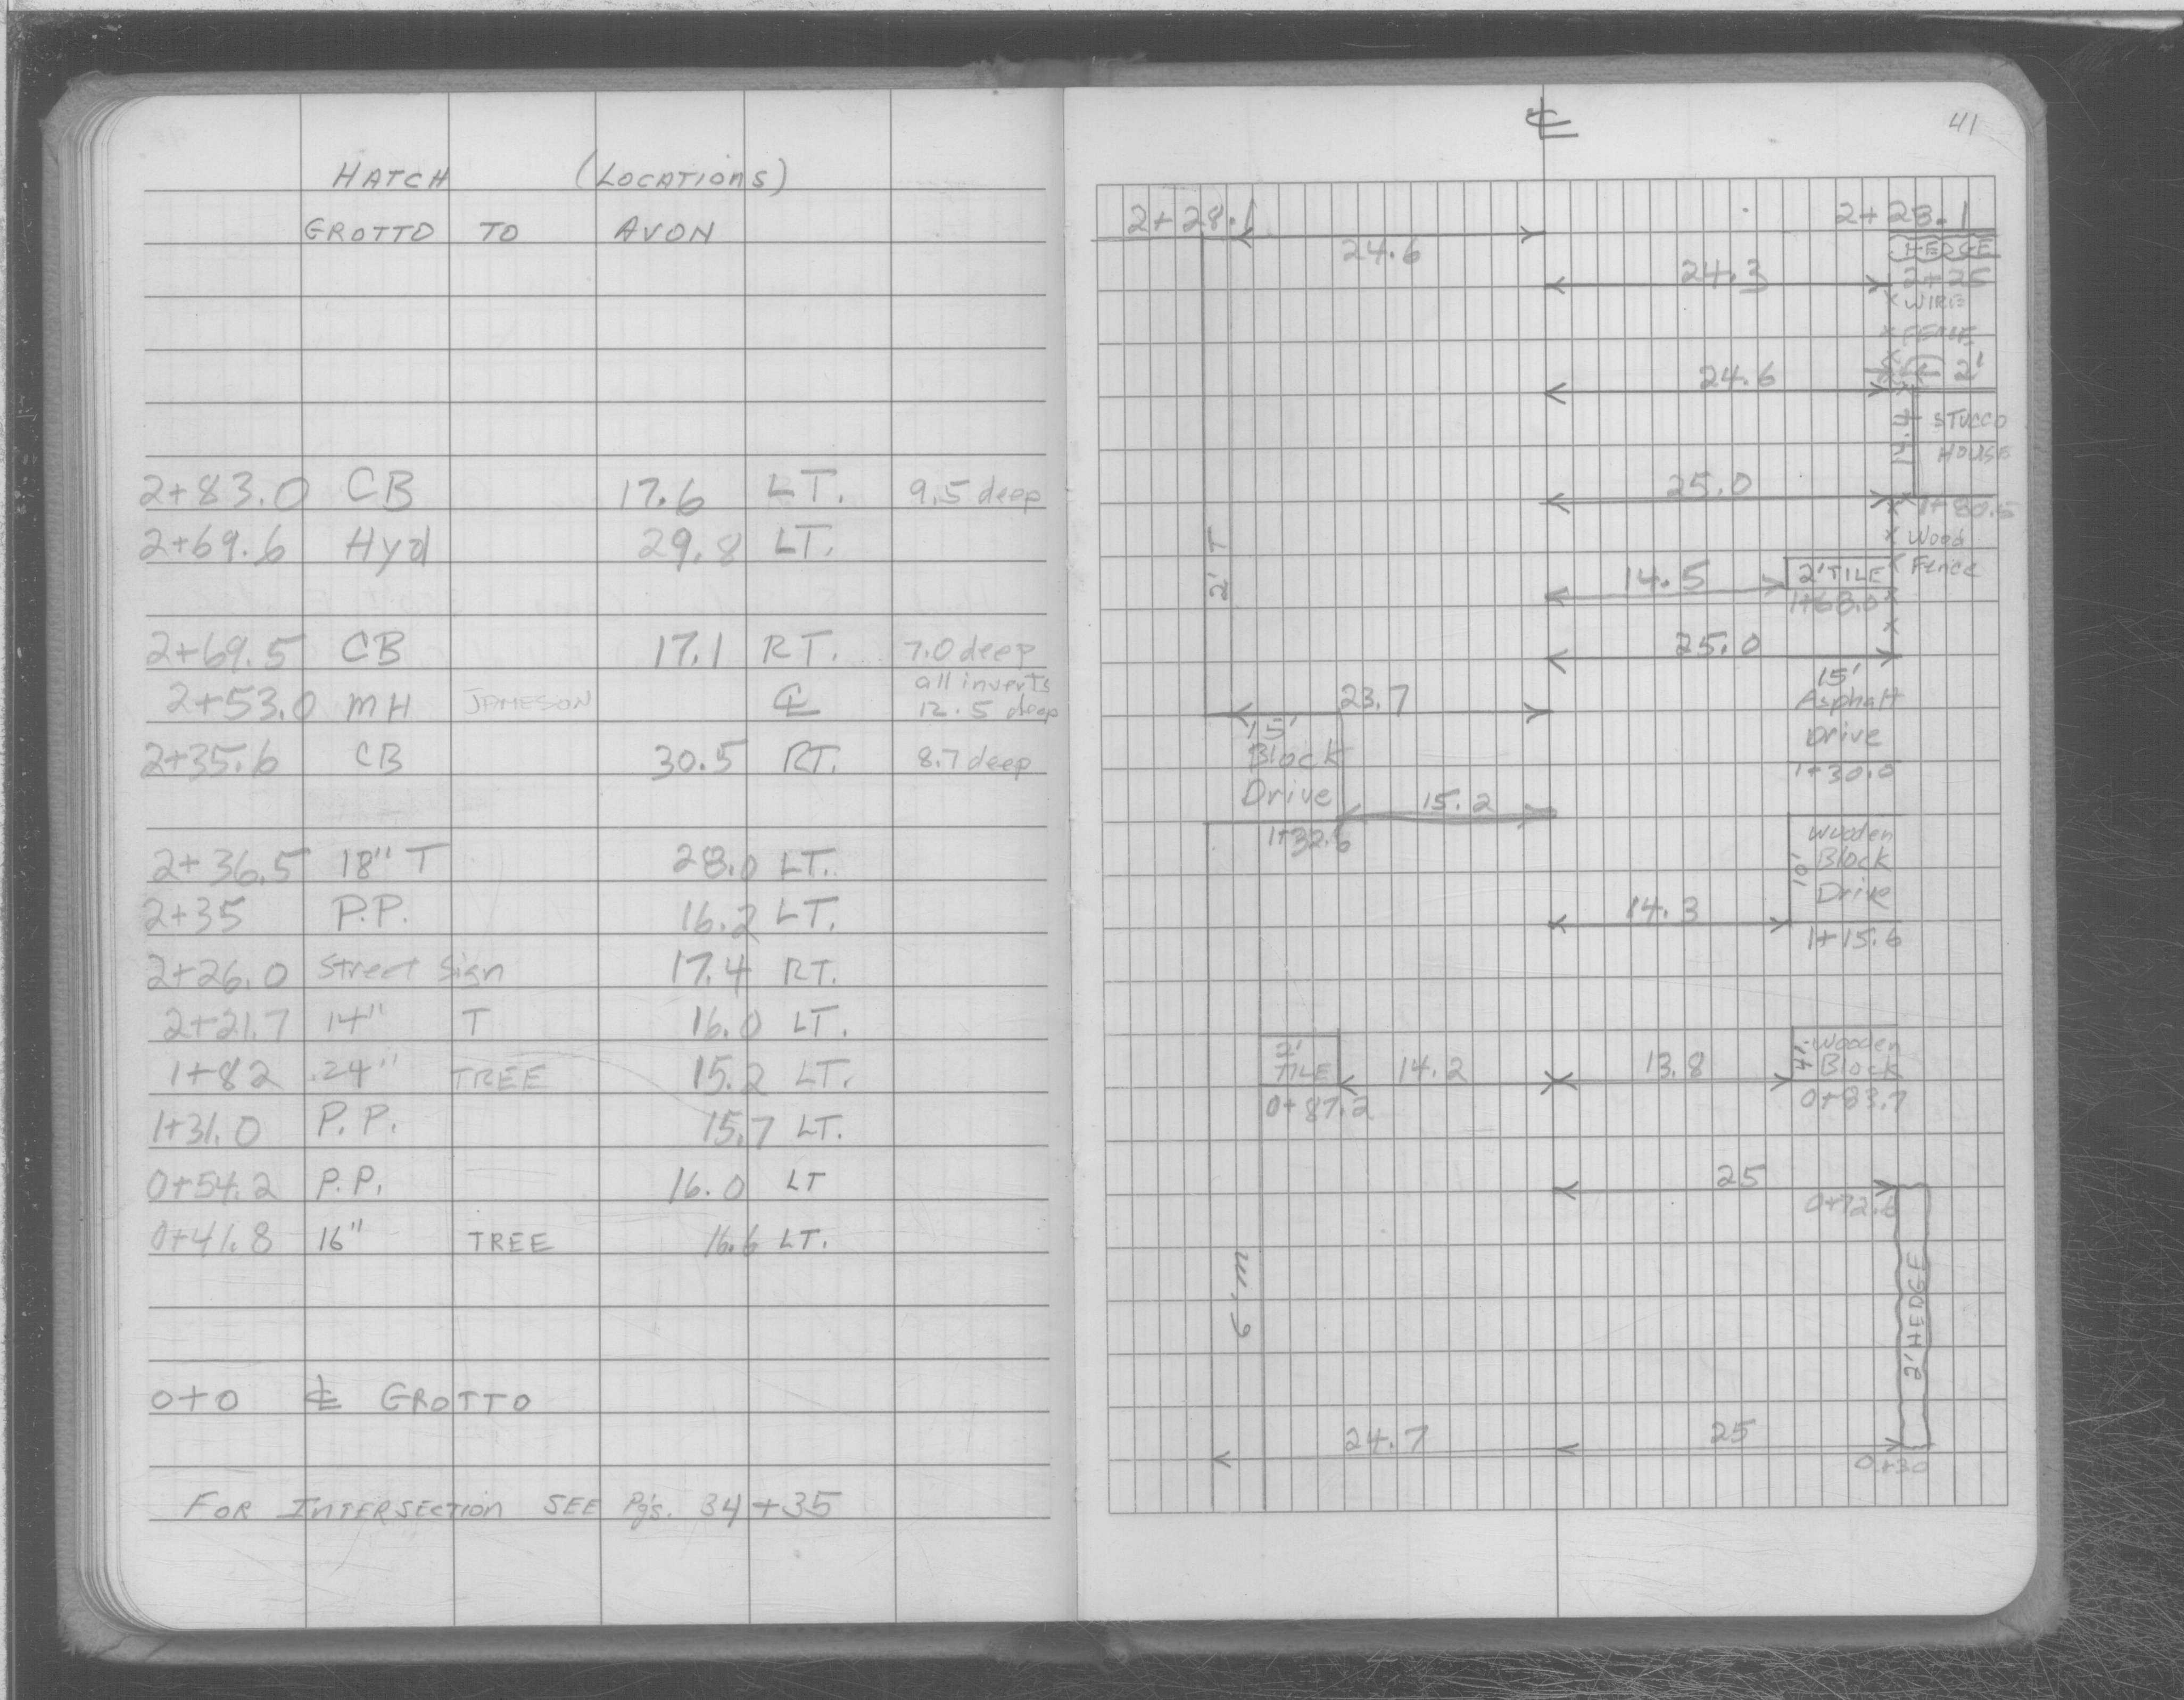 HATCH (LOCATIONS)
GROTTO TO AVON
2+83.0 CB 17.6 LT. 9.5 deep
2+69.6 Hyd 29.8 LT.
2+69.5 CB 17.1 RT. 7.0 deep
all inverts
2+53.0 MH JAMESON ℄ 12.5 deep
2+35.6 CB 30.5 RT. 8.7 deep
2+36.5 18" T 28.0 LT.
2+35 P.P. 16.2 LT.
2+26.0 Street Sign 17.4 RT.
2+21.7 14" T 16.0 LT.
1+82 24" TREE 15.2 LT.
1+31.0 P.P. 15.7 LT.
0+54.2 P.P. 16.0 LT
0+41.8 16" TREE 16.6 LT.
0+0 ℄ GROTTO
FOR INTERSECTION SEE Pg's. 34+35
℄ 41
2+28.1 2+28.1
24.6 HEDGE
24.3 2+25
WIRE
FENCE
24.6 2'
STUCCO
HOUSE
25.0 1+80.5
Wood
2' T
14.5 2' TILE Fence
1+68.0
25.0
15'
23.7 Asphalt
15' Drive
Block 1+30.0
Drive 15.2
1+32.6
Wooden
10' Block
Drive
14.3 1+15.6
2' TILE 14.2 13.8 4' Wooden
Block
0+87.2 0+83.7
25 0+72.6
6' M
2' HEDGE
24.7 25
0+30